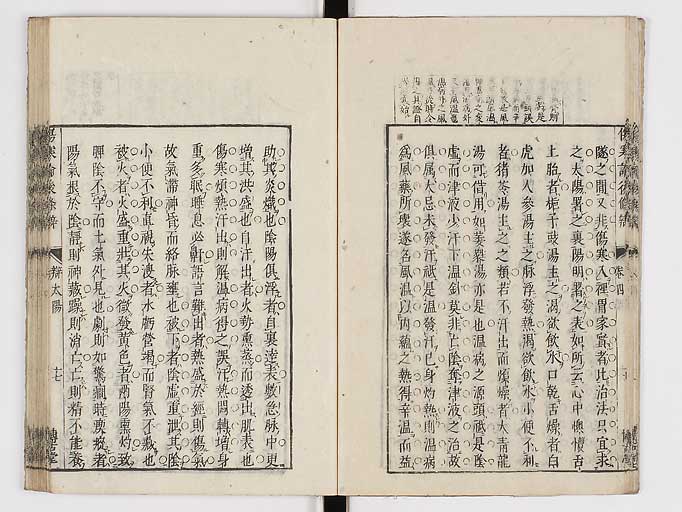 隧之間又非傷寒入裡胃家實者比治法只宜求
之太陽署之裏陽明署之表如所云心中懊憹舌
上胎者梔子豉湯主之渴欲飲水口乾舌燥者白
虎加人參湯主之脉浮發熱渴欲飲水小便不利
者猪苓湯主之之類若不汗出而煩燥者大青龍
湯可借用如葳蕤湯亦是也温病之源頭祗是陰
虛而津液少汗下温針莫非亡陰奪津液之治故
俱属大忌未發汗祗是温發汗已身灼熱則温病
為風藥所壞遂名風温以内蘊之熱得辛温而益
卷四
助其炎熾也陰陽俱浮者自裏達表數急脉中更
增其洪盛也自汗出者火勢熏蒸而透出肌表也
傷寒煩熱汗出則解温病得之誤汗熱悶轉增身
重多眠睡息必鼾語言難出者熱盛於經則傷氣
故氣滯神昏而絡脉壅也被下者陰虛重泄其陰
小便不利直視失溲者水虧營竭而腎氣不藏也
被火者火盛重壯其火微發黃色者兩陽熏灼致
脾陰不守而土氣外見也劇則如驚癇時瘈瘲者
陽氣根於陰靜則神藏躁則消亡亡則精不能養
傷寒論後條辨 辨太陽 十七